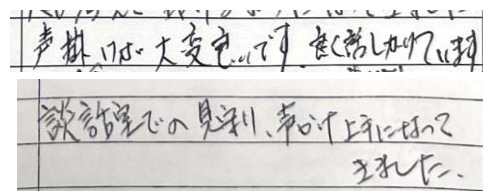 声掛けが大変良いです。良く話しかけています
談話室での見守り、声かけ上手になって
きました。